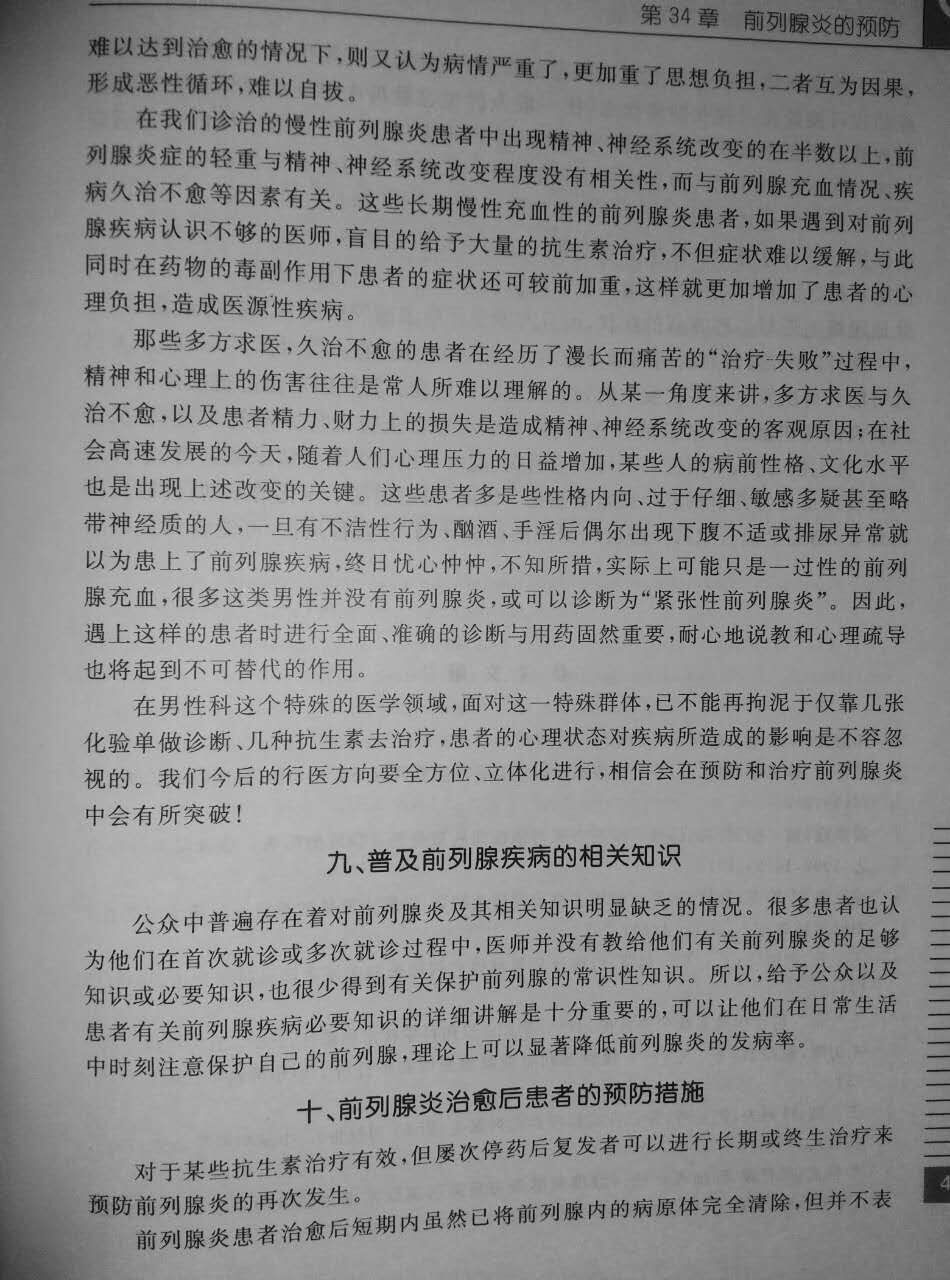 第 34 章　前列腺炎的预防
难以达到治愈的情况下，则又认为病情严重了，更加重了思想负担，二者互为因果，
形成恶性循环，难以自拔。
在我们诊治的慢性前列腺炎患者中出现精神、神经系统改变的在半数以上，前
列腺炎症的轻重与精神、神经系统改变程度没有相关性，而与前列腺充血情况、疾
病久治不愈等因素有关。这些长期慢性充血性的前列腺炎患者，如果遇到对前列
腺疾病认识不够的医师，盲目的给予大量的抗生素治疗，不但症状难以缓解，与此
同时在药物的毒副作用下患者的症状还可较前加重，这样就更加增加了患者的心
理负担，造成医源性疾病。
那些多方求医，久治不愈的患者在经历了漫长而痛苦的“治疗-失败”过程中，
精神和心理上的伤害往往是常人所难以理解的。从某一角度来讲，多方求医与久
治不愈，以及患者精力、财力上的损失是造成精神、神经系统改变的客观原因；在社
会高速发展的今天，随着人们心理压力的日益增加，某些人的病前性格、文化水平
也是出现上述改变的关键。这些患者多是些性格内向、过于仔细、敏感多疑甚至略
带神经质的人，一旦有不洁性行为、酗酒、手淫后偶尔出现下腹不适或排尿异常就
以为患上了前列腺疾病，终日忧心忡忡，不知所措，实际上可能只是一过性的前列
腺充血，很多这类男性并没有前列腺炎，或可以诊断为“紧张性前列腺炎”。因此，
遇上这样的患者时进行全面、准确的诊断与用药固然重要，耐心地说教和心理疏导
也将起到不可替代的作用。
在男性科这个特殊的医学领域，面对这一特殊群体，已不能再拘泥于仅靠几张
化验单做诊断、几种抗生素去治疗，患者的心理状态对疾病所造成的影响是不容忽
视的。我们今后的行医方向要全方位、立体化进行，相信会在预防和治疗前列腺炎
中会有所突破！
九、普及前列腺疾病的相关知识
公众中普遍存在着对前列腺炎及其相关知识明显缺乏的情况。很多患者也认
为他们在首次就诊或多次就诊过程中，医师并没有教给他们有关前列腺炎的足够
知识或必要知识，也很少得到有关保护前列腺的常识性知识。所以，给予公众以及
患者有关前列腺疾病必要知识的详细讲解是十分重要的，可以让他们在日常生活
中时刻注意保护自己的前列腺，理论上可以显著降低前列腺炎的发病率。
十、前列腺炎治愈后患者的预防措施
对于某些抗生素治疗有效，但屡次停药后复发者可以进行长期或终生治疗来
预防前列腺炎的再次发生。
前列腺炎患者治愈后短期内虽然已将前列腺内的病原体完全清除，但并不表
4